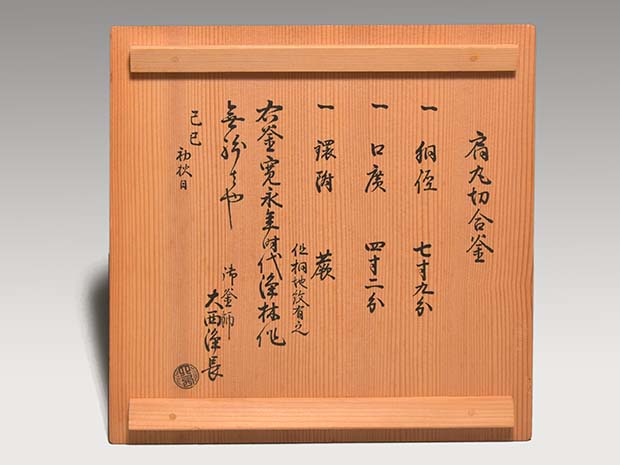 肩丸切合釜
一 胴径 七寸九分
一 口廣 四寸二分
一 鐶附 蕨
但桐地紋有之
右釜寛永年時代浄林作
無紛者也
己巳 初秋日
御釜師
大西浄長